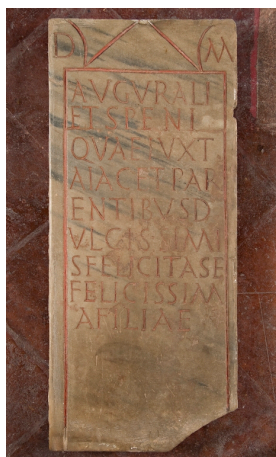 D M
AVGVRALI
ETSPENI
QVAEIVXT
AIACETPAR
ENTIBVSD
VLCISSIMI
SFELICITASE
FELICISSIM
AFILIAE